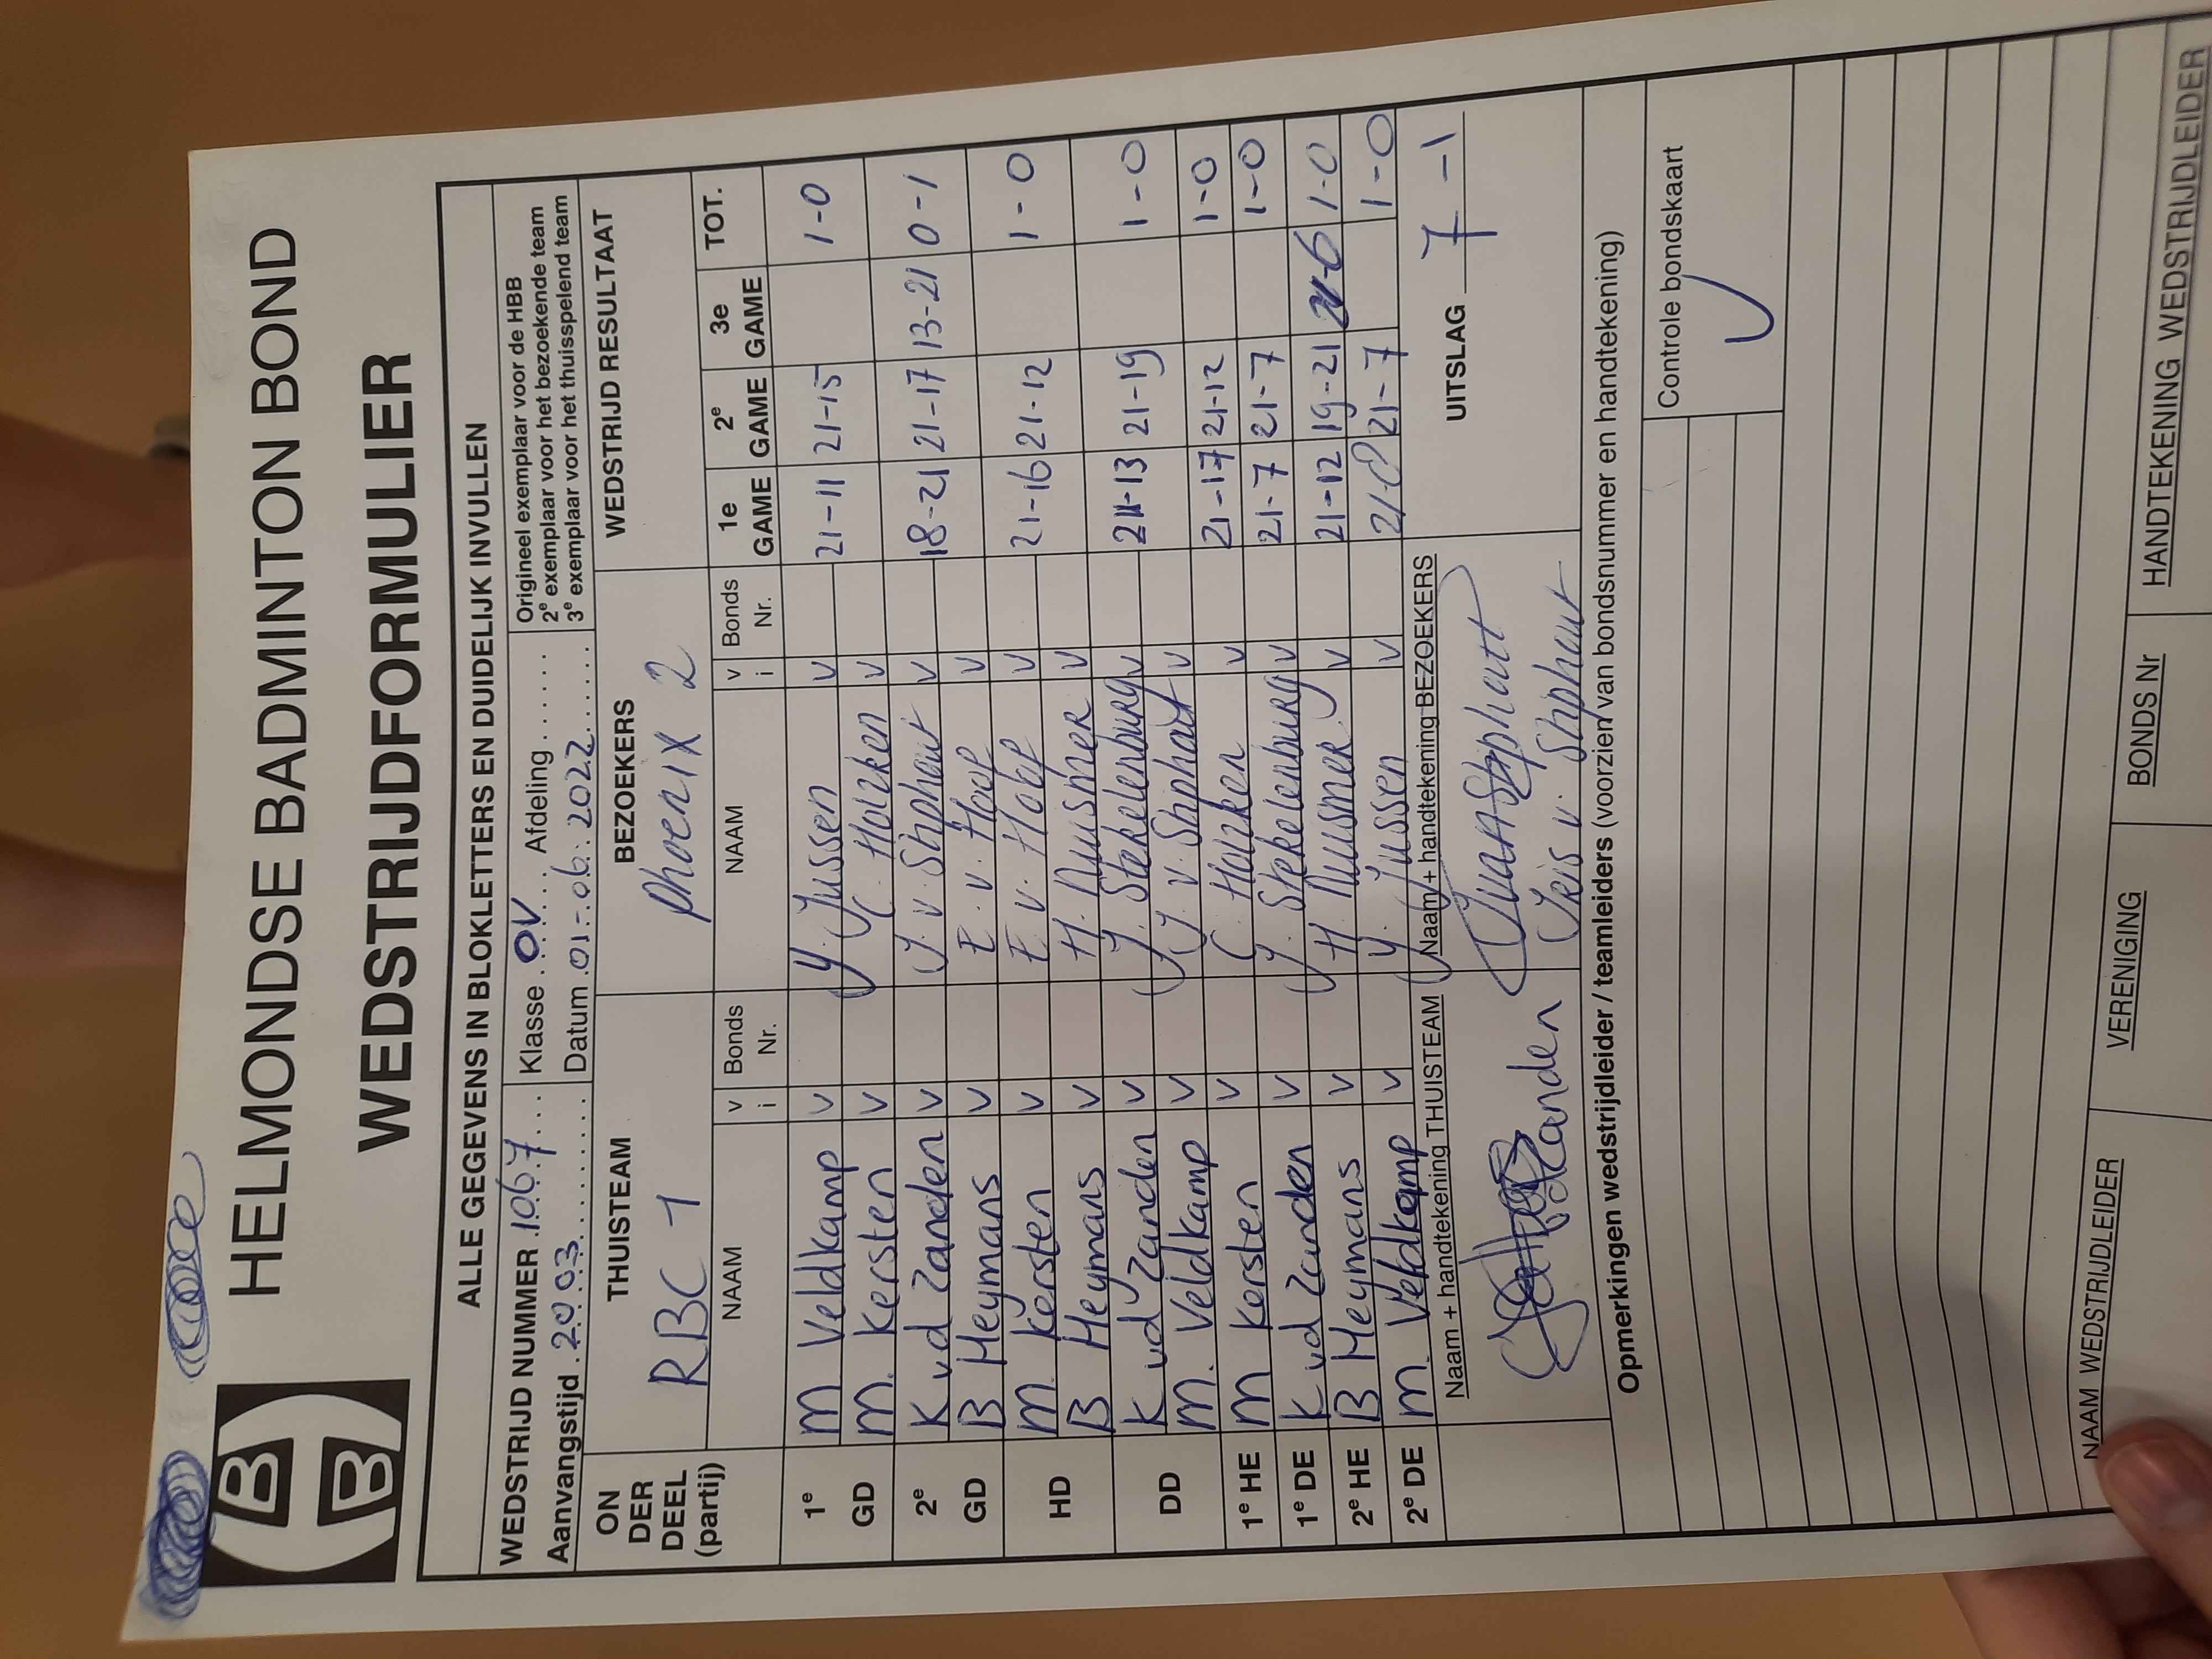 HELMONDSE BADMINTON BOND
WEDSTRIJDFORMULIER
ALLE GEGEVENS IN BLOKLETTERS EN DUIDELIJK INVULLEN
WEDSTRIJD NUMMER 1067 Klasse OV Afdeling
Aanvangstijd 2003 Datum 01-06-2022
Origineel exemplaar voor de HBB
2e exemplaar voor het bezoekende team
3e exemplaar voor het thuisspelend team
ON DER DEEL (partij) THUISTEAM BEZOEKERS WEDSTRIJD RESULTAAT
RBC 1 Phoenix 2
NAAM v i Bonds Nr. NAAM v i Bonds Nr. 1e GAME 2e GAME 3e GAME TOT.
1e GD M Veldkamp v Y. Jussen v 21-11 21-15 1-0
M. Kersten v C. Holzken v
2e GD K vd Zanden v J. v. Stiphout v 18-21 21-17 13-21 0-1
B Heymans v E. v. Hoef v
HD M. Kersten v E. v. Hoef v 21-16 21-12 1-0
B Heymans v v
DD K vd Zanden v J. Stekelenburg v 21-13 21-19 1-0
M. Veldkamp v J. v. Stiphout v
1e HE M Kersten v C. Holzken v 21-17 21-12 1-0
1e DE K vd Zanden v J. Stekelenburg v 21-7 21-7 1-0
2e HE B Heymans v v 21-12 19-21 21-6 1-0
2e DE M. Veldkamp v Y. Jussen v 21-8 21-7 1-0
Naam + handtekening THUISTEAM Naam + handtekening BEZOEKERS UITSLAG 7-1
v Stiphout
Opmerkingen wedstrijdleider / teamleiders (voorzien van bondsnummer en handtekening)
Controle bondskaart
NAAM WEDSTRIJDLEIDER VERENIGING BONDS Nr HANDTEKENING WEDSTRIJDLEIDER